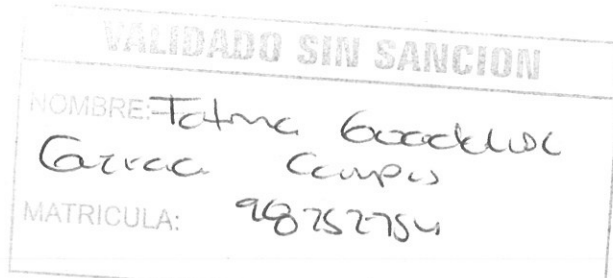 VALIDADO SIN SANCION
NOMBRE: Fatima Guadalupe
Garcia Campos
MATRICULA: 98752754